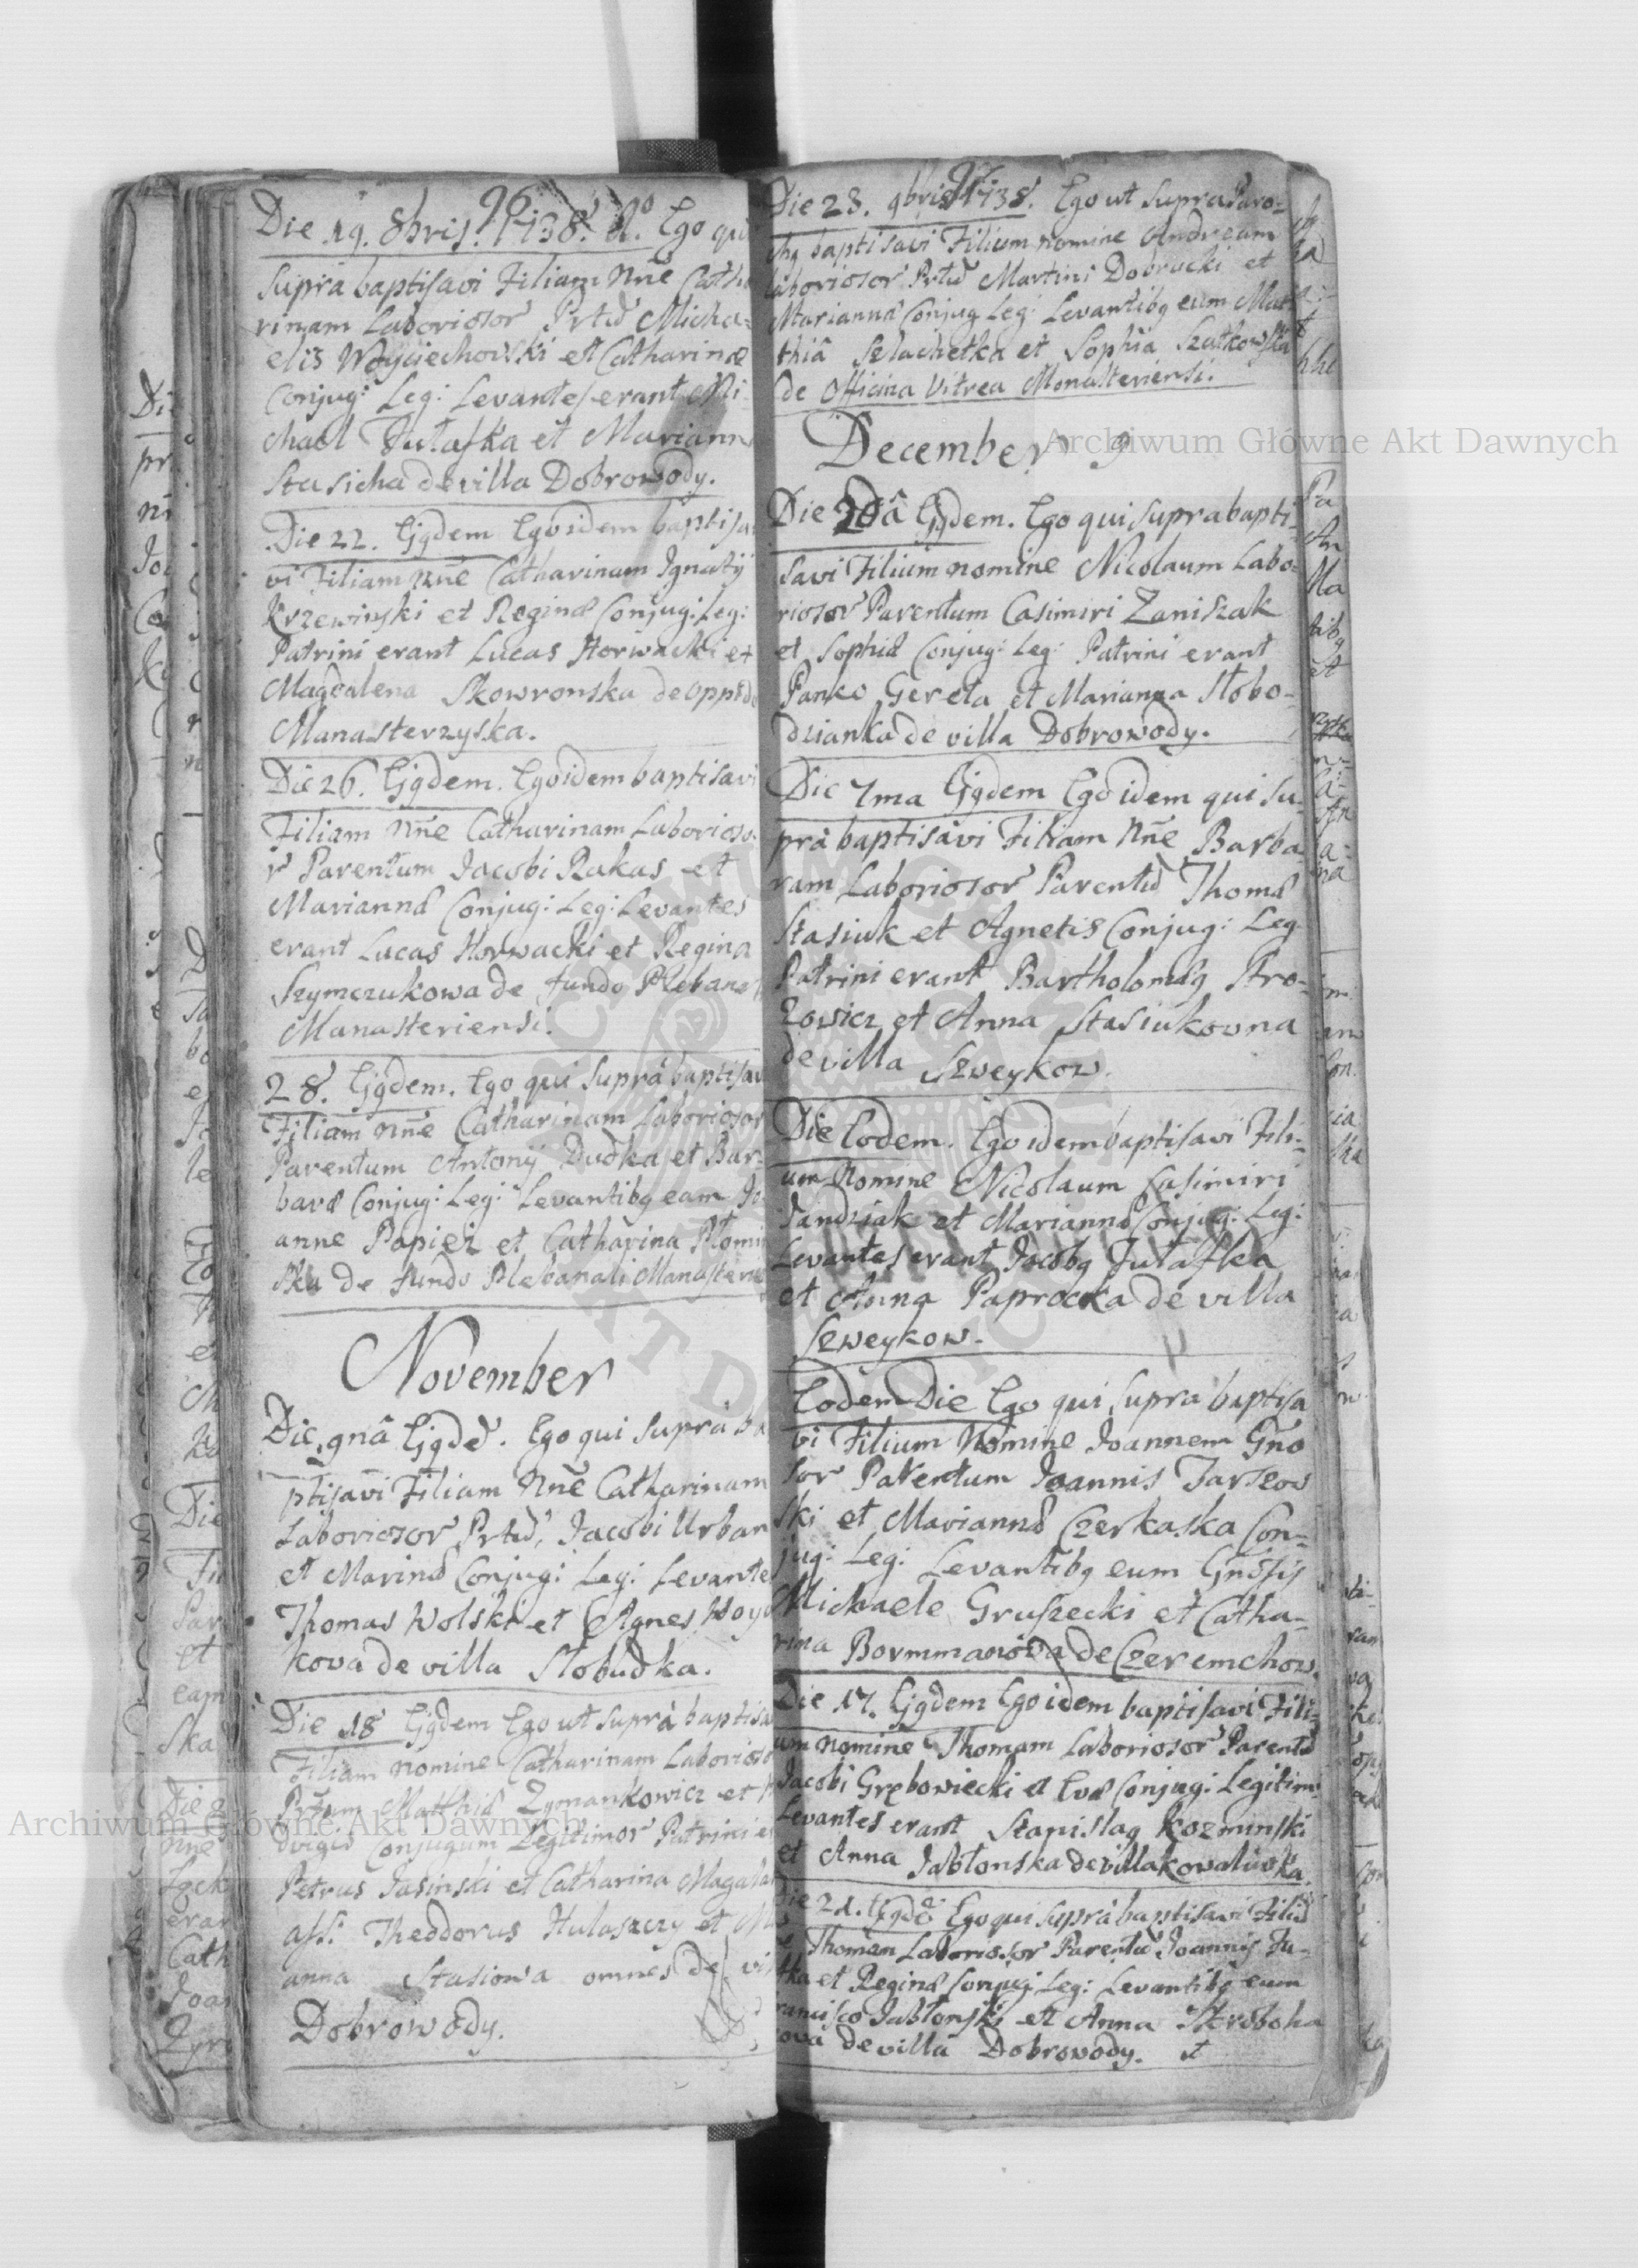 96
Die 19. 8bris. 1738. Ao. Ego qui
supra baptisavi Filiam Nne Catha
rinam Laboriosor Prtu Micha=
elis Woyciechowski et Catharinæ
Conjug: Leg: Levantes erant Mi
chael Futafka et Mariann
Stasicha de villa Dobrowody.
Die 22. Ejqdem Ego idem baptisa
vi Filiam Nne Catharinam Ignatij
Krzewinski et Reginæ Conjug: Leg:
Patrini erant Lucas Horwacki et
Magdalena Skowronska de oppido
Manasterzyska.
Die 26. Ejqdem. Ego idem baptisavi
Filiam Nne Catharinam Laborioso
r Parentum Jacobi Rakas et
Mariannæ Conjug: Leg: Levantes
erant Lucas Horwacki et Regina
Szymczukowa de fundo Plebana
Manasteriensi.
28. Ejqdem. Ego qui supra baptisav
Filiam Nne Catharinam Laboriosor
Parentum Antonij Dudka et Bar=
baræ Conjug: Leg: Levantibq eam Jo
anne Papiez et Catharina Płomi
ska de fundo Plebanali Manasteri
November
Die 9nâ Ejqde. Ego qui supra ba
ptisavi Filiam Nne Catharinam
Laboriosor Prtu, Jacobi Urban
et Marinæ Conjug: Leg: Levante
Thomas Wolski et Agnes Woy
kova de villa Słobudka.
Die 18 Ejqdem Ego ut supra baptisa
Filiam nomine Catharinam Laborioso
Prtum Matthiæ Zymankowicz et
dvigis Conjugum Legitimor Patrini e
Petrus Jasinski et Catharina Magal
ass: Theodorus Hulaszczy et M
anna Stasiowa omnes de vi
Dobrowody.
97
Die 23. 9bris 1738. Ego ut supra Paro=
chq baptisavi Filium nomine Andream
laboriosor Prtu Martini Dobrucki et
Mariannæ Conjug Leg: Levantibq eum Mat
thiâ Szlachetka et Sophia Szatkowska
de Officina Vitrea Monasteriensi.
December
Die 20â Ejqdem. Ego qui supra bapti=
savi Filium nomine Nicolaum Labo=
riosor Parentum Casimiri Zaniszak
et Sophiæ Conjug: Leg: Patrini erant
Panko Gereta et Marianna Słobo=
dzianka de villa Dobrowody.
Die 7ma Ejqdem Ego idem qui su=
pra baptisavi Filiam Nne Barba
ram Laboriosor Parentu Thomæ
Stasiuk et Agnetis Conjug: Leg
Patrini erant Bartholomæq Stro=
zowicz et Anna Stasiukovna
de villa Szweykow.
Die Eodem. Ego idem baptisavi Fili=
um Nomine Nicolaum Casimiri
Jandziak et Mariannæ Conjug: Leg:
Levantes erant Jacobq Futafka
et Anna Paprocka de villa
Szweykow.
Eodem Die Ego qui supra baptisa
vi Filium Nomine Joannem Gño
sor Parentum Joannis Tarszow
ski et Mariannæ Czerkaska Con=
jug: Leg: Levantibq eum Gñosis
Michaele Gruszecki et Catha=
rina Bormmanowa de Czeremchow.
Die 17. Ejqdem Ego idem baptisavi Fili=
um nomine Thomam Laboriosor Parentu
Jacobi Grębowiecki et Evæ Conjug: Legitim
Levantes erant Stanislaq Kozminski
et Anna Jabłonska de villa Kowalówka.
Die 21. Ejqde Ego qui supra baptisavi Filiu
Thomam Laboriosor Parentu Joannis Fu=
tka et Reginæ Conjug: Leg: Levantibq eum
rancisco Jabłonski et Anna Skroboha
cova de villa Dobrowody.
Archiwum Główne Akt Dawnych
Archiwum Główne Akt Dawnych